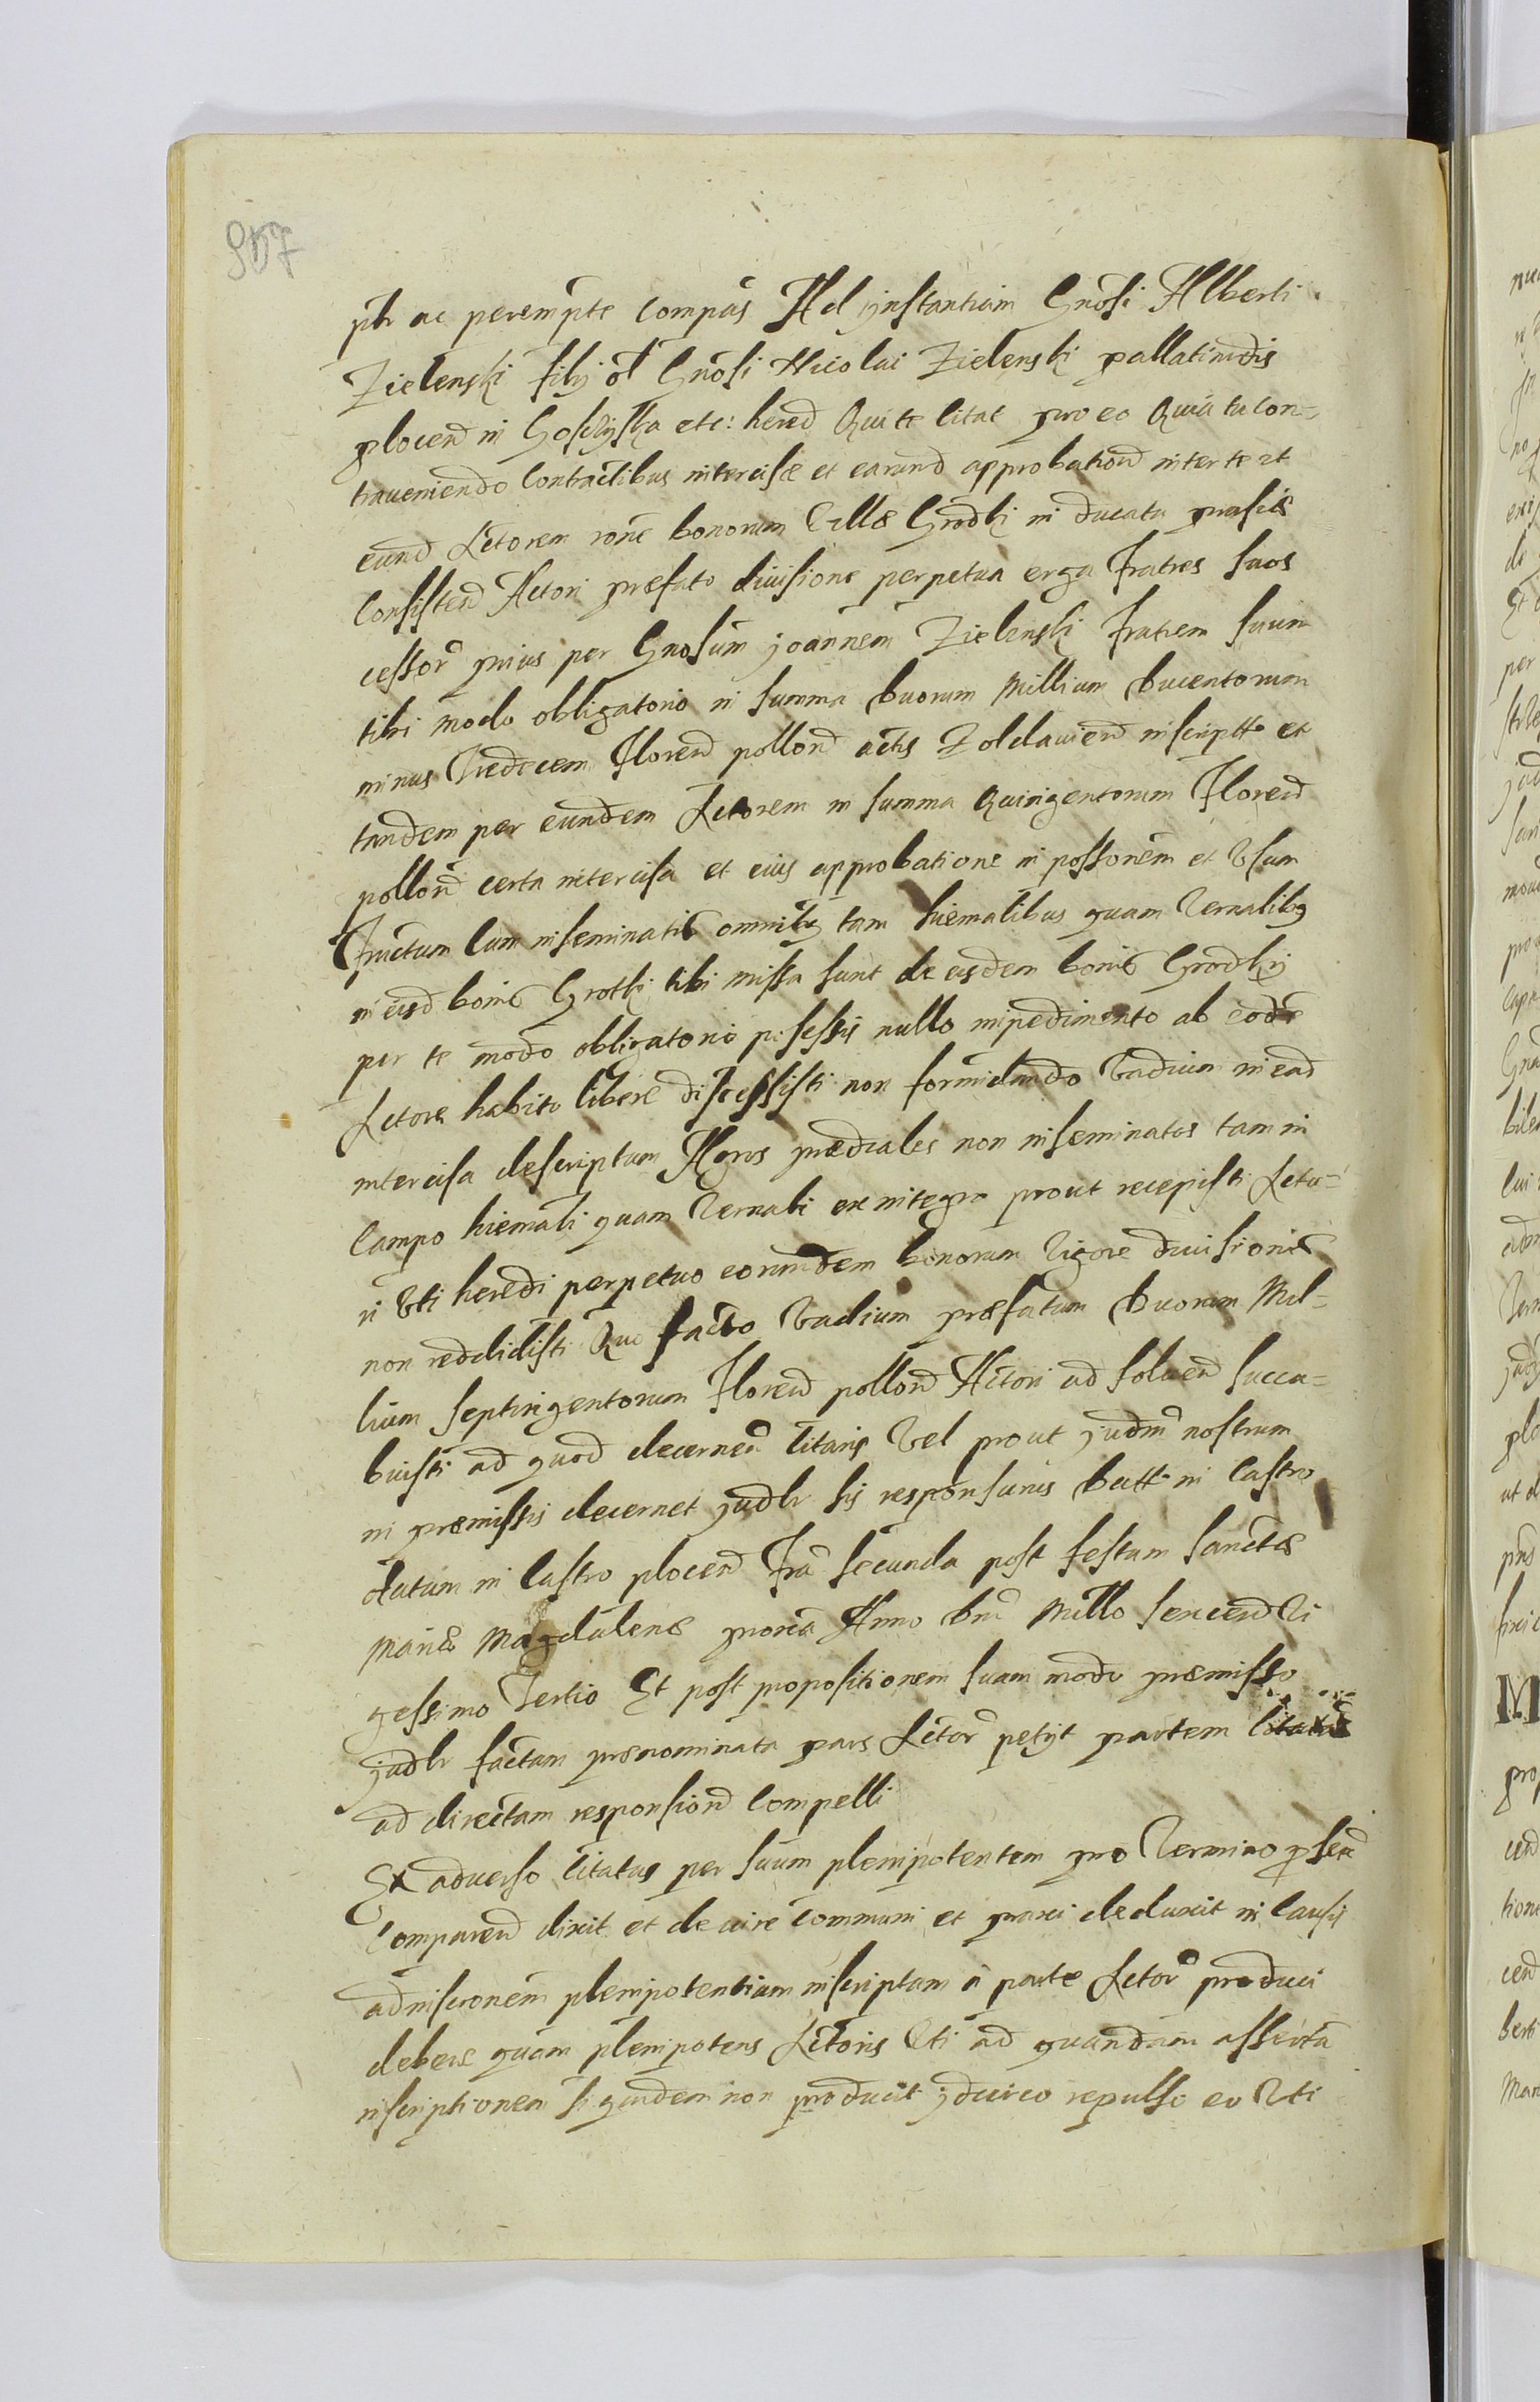 957
ptr ac perempte compas Ad jnstantiam Gnosi Alberti
Zielenski filij ol Gnosi Nicolai Zielenski pallatinidis
plocen in Goslijska etc: hered Qui te citat pro eo Quia tu con=
traueniendo Contractibus intercisæ et earund approbationi inter te et
eund Actorem rone bonorum Villæ Grodki in ducatu
Consisten Actori præfato diuisione perpetua erga Fratres suos
cessor prius per Gnosum Joannem Zielenski Fratrem suum
tibi modo obligatorio in summa duorum Millium ducentorum
minus Tredecem Floren pollon actis Zoldauien inscripto et
tandem per eundem Actorem in summa Quingentorum Floren
pollon certa intercisa et eius approbatione in possonem et Vsum
Fructum cum inseminatis omnibus tam hiemalibus quam Vernalibus
in eisd bonis Grotki tibi missa sunt de eisdem bonis Grodkij
per te modo obligatorio possessis nullo impedimento ab eode
Actore habito libere discessisti non formidando Vadium in ead
intercisa descriptum Agros prædiales non inseminatos tam in
Campo hiemali quam Vernali ex integro prout recepisti Acto=
ri Vti heredi perpetuo eorundem bonorum Vigore diuisionis
non reddidisti Quo facto Vadium præfatum duorum Mil=
lium septingentorum Floren pollon Actori ad soluen succu=
buisti ad quod decernen citaris Vel prout judm nostrum
in præmissis decernet judlr sis responsurus datt in Castro
datum in Castro plocen Fra secunda post festum sanctæ
Mariæ Magdalenæ proxa Anno dni Millo sexcen Vi
gessimo Tertio Et post propositionem suam modo præmisso
judlr factam prænominata pars Actor petijt partem citata
ad directam responsion compelli
Ex aduerso citatus per suum plenipotentem pro Termino
Comparen dixit et de iure communi et praxi deduxit in causis
ad plenipotentiam inscriptam a parte Actor produci
debere quam plenipotens Actoris Vti ad quandam assertà
inscriptionem siquidem non producit jdcirco repulso eo Vti